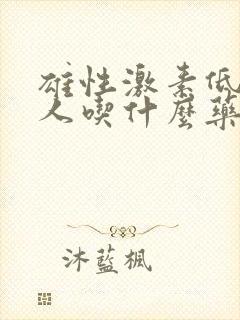 雄性激素低
人喫什麼藥
沐藍楓